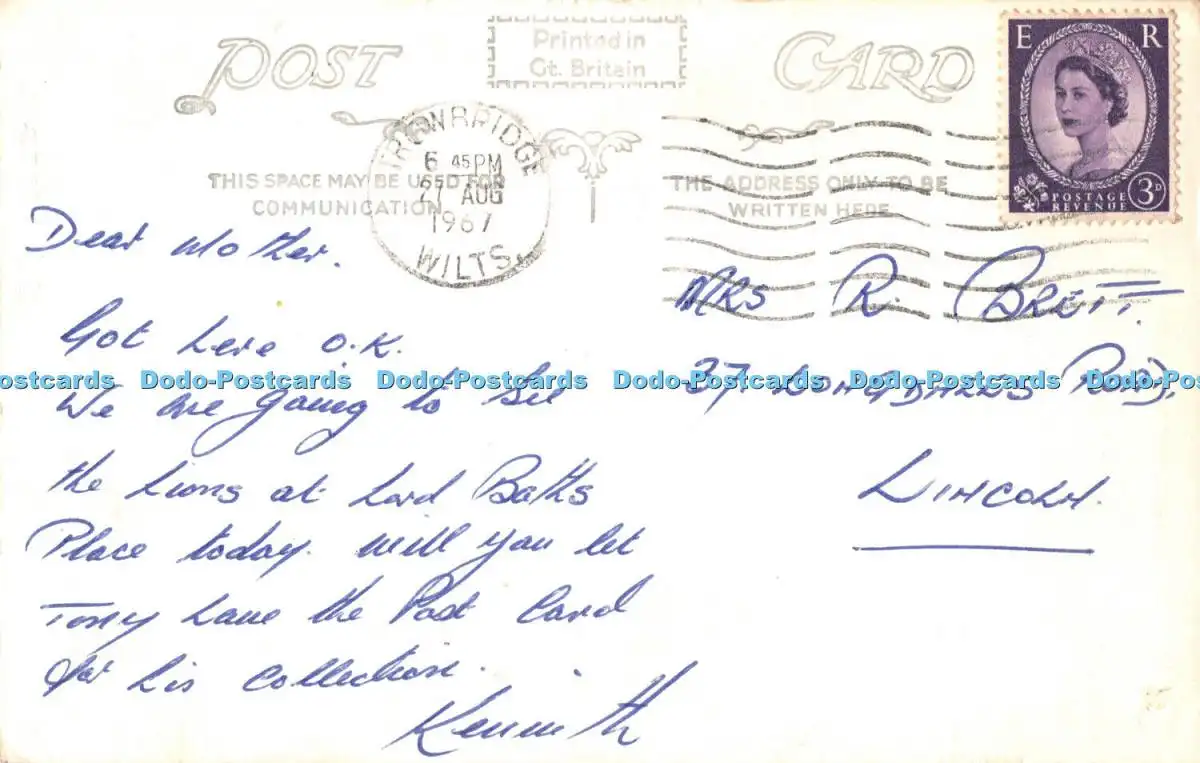 POST CARD
Printed in
Gt. Britain
E R
POSTAGE
REVENUE 3D
TROWBRIDGE
6 45PM
AUG
1967
WILTS.
THIS SPACE MAY BE USED FOR
COMMUNICATION
THE ADDRESS ONLY TO BE
WRITTEN HERE
Dear Mother.
Got here O.K.
We are going to see
the Lions at Lord Baths
Place today. will you let
Tony have the Post Card
for his collection.
Kennith
MRS R. BRETT.
37, LONGDALES ROAD,
LINCOLN.
Dodo-Postcards Dodo-Postcards Dodo-Postcards Dodo-Postcards Dodo-Postcards